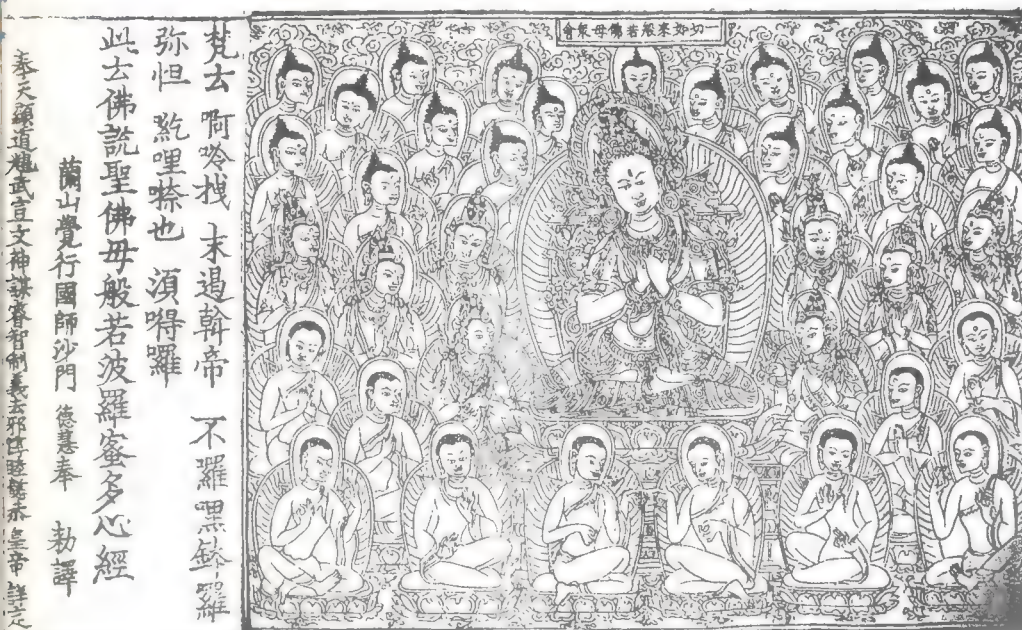 一切如來般若佛母眾會
梵云 啊呤拽 末遏斡帝 不囉嘿鉢囉
弥怛 紇哩捺也 須嘚囉
此云佛說聖佛母般若波羅蜜多心經
蘭山覺行國師沙門 德慧奉 勑譯
奉天顯道耀武宣文神謀睿智制義去邪惇睦懿恭皇帝 詳定